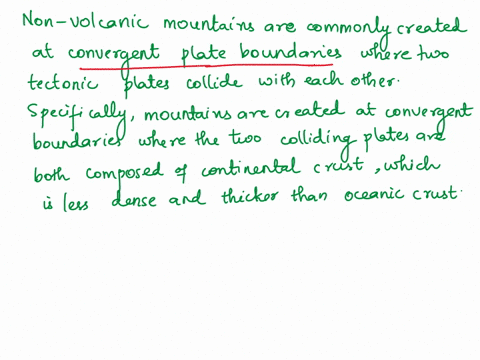 Non-volcanic mountains are commonly created
at convergent plate boundaries where two
tectonic plates collide with each other.
Specifically, mountains are created at convergent
boundaries where the two colliding plates are
both composed of continental crust, which
is less dense and thicker than oceanic crust.